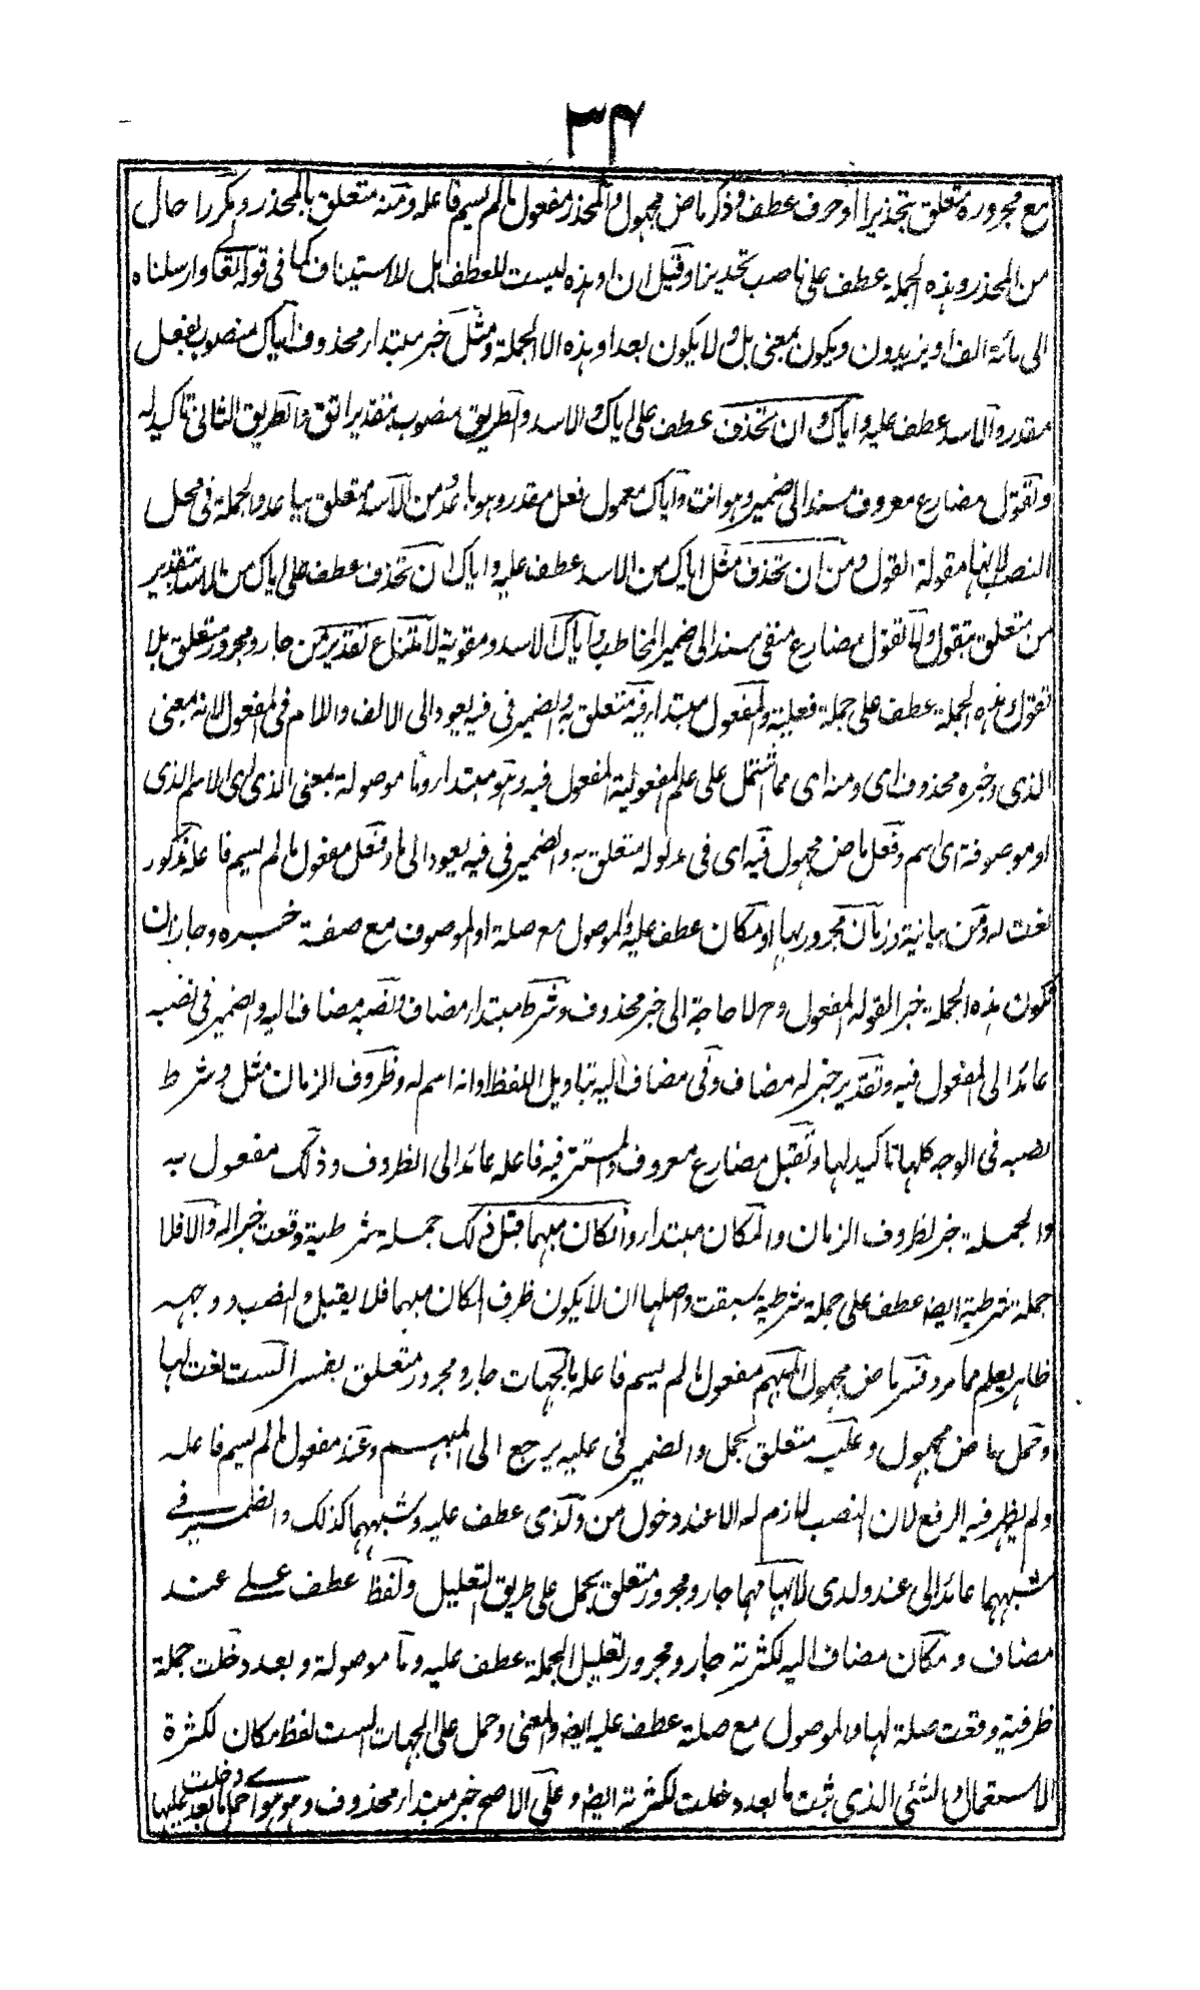 ٣٤
مع مجروره متعلق بتحذيرا او حرف عطف وذكر ماض مجهول والمحذر مفعول مالم يسم فاعله ومنه متعلق بالمحذر ومكررا حال
من المحذر وهذه الجملة عطف على ناصب تحذيرا وقيل ان او هذه ليست للعطف بل للاستيناف كما في قوله تعالى وارسلناه
الى مائة الف او يزيدون ويكون بمعنى بل ولا يكون بعد او هذه الا الجملة ومثل خبر مبتدا محذوف اياك منصوب بفعل
مقدر والاسد عطف عليه واياك وان تحذف عطف على اياك والاسد والطريق منصوب بتقدير اتق والطريق الثاني تاكيد له
وتقول مضارع معروف مسند الى ضمير وهو انت واياك معمول فعل مقدر وهو باعد ومن الاسد متعلق بباعد والجملة في محل
النصب لانها مقولة القول ومن ان تحذف مثل اياك من الاسد عطف عليه واياك ان تحذف عطف على اياك من الاسد بتقدير
من متعلق بتقول ولا تقول مضارع منفي مسند الى ضمير المخاطب واياك الاسد ومقوية لامتناع تقدير من جار ومجرور متعلق بلا
تقول وهذه الجملة عطف على جملة فعلية والمفعول مبتدا وفيه متعلق به والضمير في فيه يعود الى الالف واللام في المفعول لانه بمعنى
الذي وخبره محذوف اي ومنه اي مما اشتمل على علم المفعولية المفعول فيه وهو مبتدا وما موصولة بمعنى الذي اي الاسم الذي
او موصوفة اي اسم وفعل ماض مجهول فيه اي في مدلوله متعلق به والضمير في فيه يعود الى ما وفعل مفعول مالم يسم فاعله مذكور
نعت له ومن بيانية وزمان مجرور بها او مكان عطف عليه والموصول مع صلة او الموصوف مع صفة خبره وجاز ان
تكون هذه الجملة خبرا لقوله المفعول وح لا حاجة الى خبر محذوف وشرط مبتدا مضاف ونصبه مضاف اليه والضمير في نصبه
عائد الى المفعول فيه وتقدير خبر له مضاف وفي مضاف اليه بتاويل اللفظ او انه اسم له وظروف الزمان مثل وشرط
نصبه في الوجه كلها تاكيد لها وتقبل مضارع معروف والمستتر فيه فاعله عائد الى الظروف وذلك مفعول به
والجملة خبر لظروف الزمان والمكان مبتدا وان كان مبهما قبل ذلك جملة شرطية وقعت خبرا له والا فلا
جملة شرطية ايضا عطف على جملة شرطية سبقت واصلها ان لا يكون ظرف المكان مبهما فلا يقبل والنصب ووجهه
ظاهر يعلم مما مر وفسر ماض مجهول المبهم مفعول مالم يسم فاعله بالجهات جار ومجرور متعلق بفسر الست نعت لها
وحمل ماض مجهول وعليه متعلق بحمل والضمير في عليه يرجع الى المبهم وعند مفعول مالم يسم فاعله
ولم يظهر فيه الرفع لان النصب لازم له الا عند دخول من ولدى عطف عليه وشبههما كذلك والضمير في
شبههما عائد الى عند ولدى لابهامهما جار ومجرور متعلق بحمل على طريق التعليل ولفظ عطف على عند
مضاف ومكان مضاف اليه لكثرته جار ومجرور لتعليل الجملة عطف عليه وما موصولة وبعد دخلت جملة
ظرفية وقعت صلة لها والموصول مع صلة عطف عليه ايضا والمعنى وحمل على الجهات الست لفظ مكان لكثرة
الاستعمال والشئ الذي ثبت ما بعد دخلت لكثرته ايضا وعلى الاصح خبر مبتدا محذوف وهو حمل ما بعد دخلت عليها